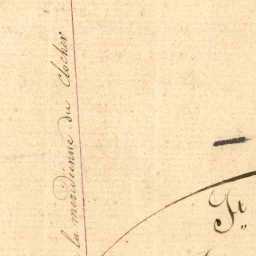 la meridienne du clocher